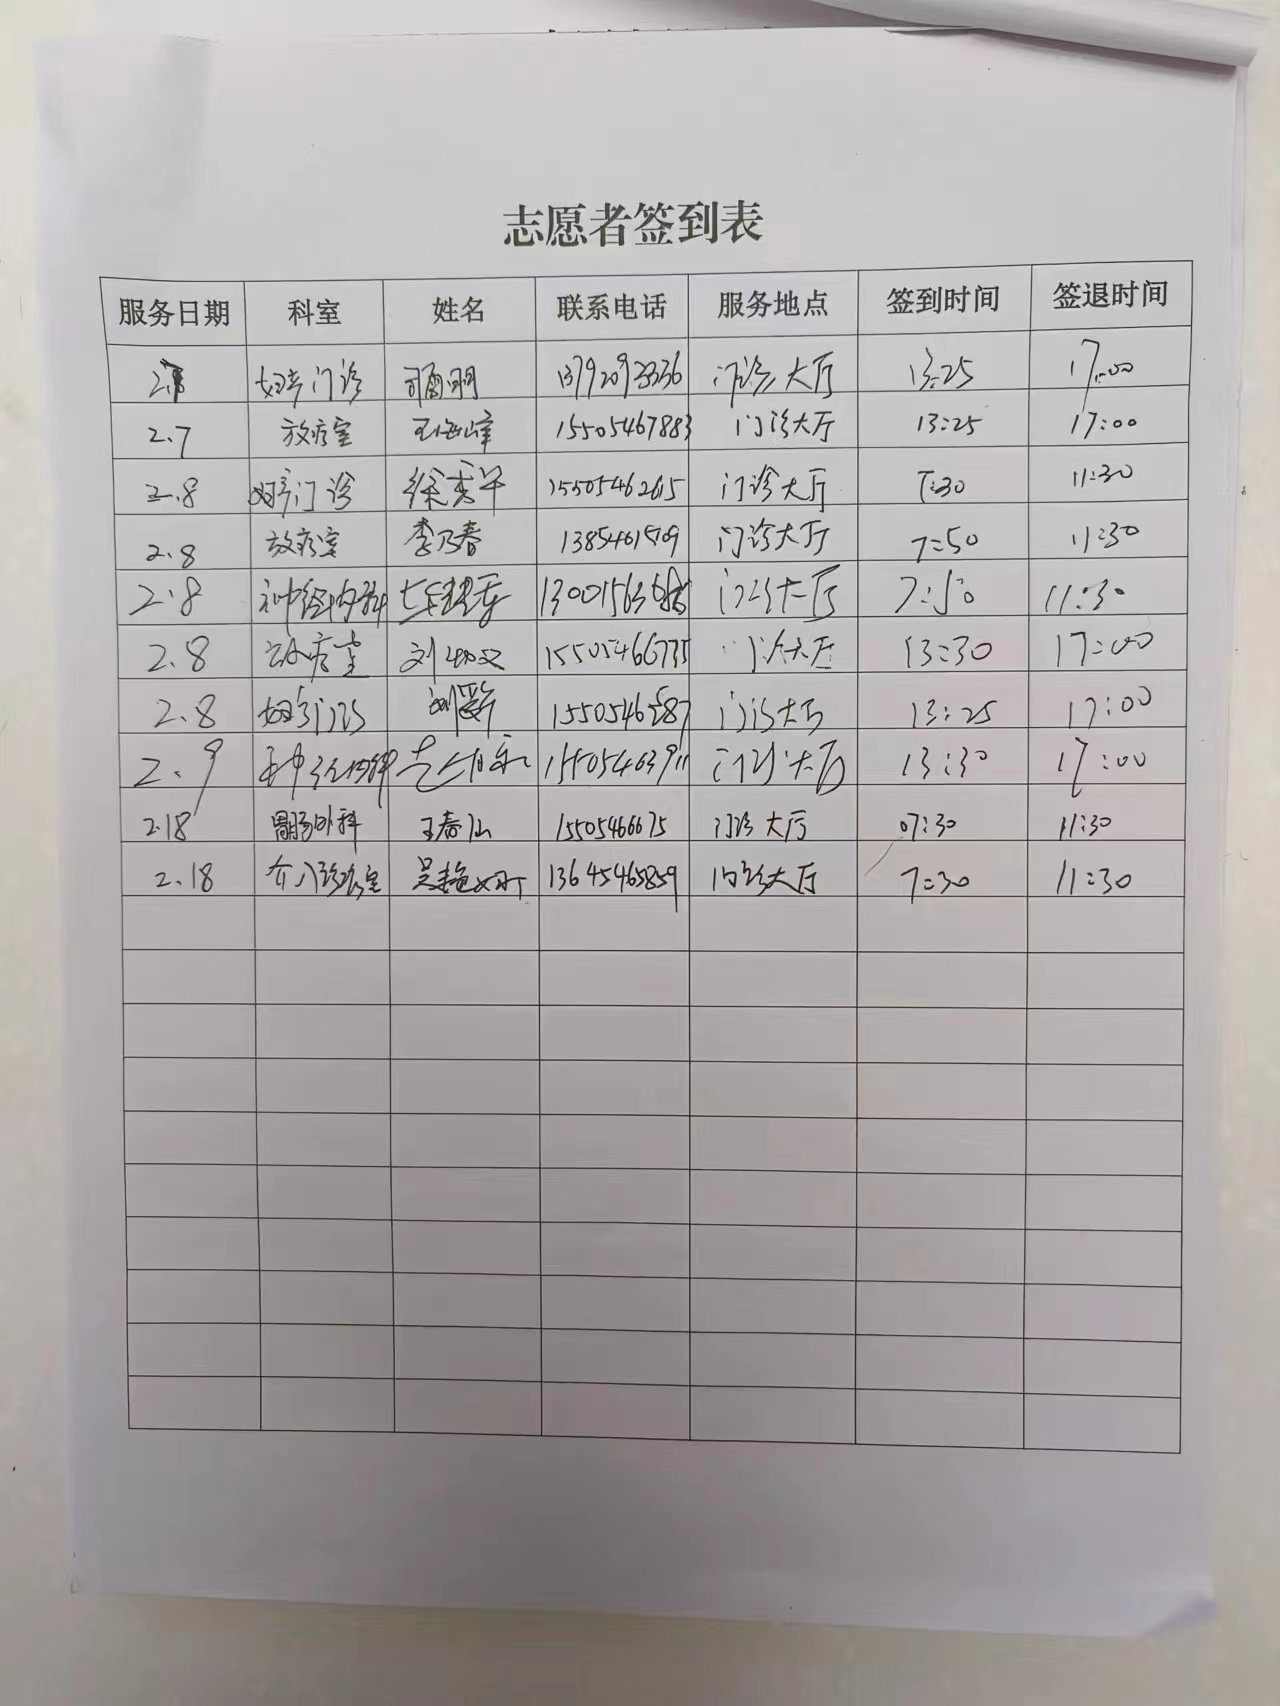 志愿者签到表
服务日期 科室 姓名 联系电话 服务地点 签到时间 签退时间
妇产门诊 13792092336 门诊大厅 13:25 17:00
2.7 放疗室 王海峰 15505467883 门诊大厅 13:25 17:00
2.8 妇产门诊 徐秀华 15505462615 门诊大厅 7:30 11:30
2.8 放疗室 李乃春 门诊大厅 7:50 11:30
2.8 神经内科 门诊大厅 7:50 11:30
2.8 放疗室 15505466735 门诊大厅 13:30 17:00
2.8 妇产门诊 门诊大厅 13:25 17:00
2.9 神经内科 15505463911 门诊大厅 13:30 17:00
2.18 胃肠外科 王春仙 15505466675 门诊大厅 07:30 11:30
2.18 介入诊疗室 13645465859 门诊大厅 7:30 11:30